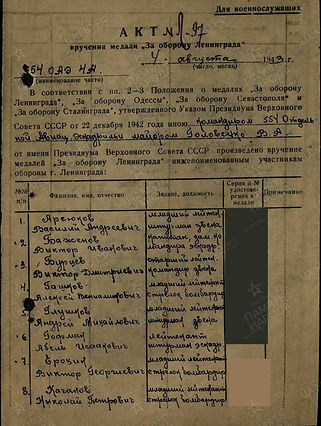 Для военнослужащих
АКТ № 1-97
вручения медали „За оборону Ленинграда“
августа 1943 г.
(число, месяц)
554 ОАЭ
(наименование части)
В соответствии с пп. 2—3 Положения о медалях „За оборону
Ленинграда“, „За оборону Одессы“, „За оборону Севастополя“ и
„За оборону Сталинграда“, утвержденного Указом Президиума Верховного
Совета СССР от 22 декабря 1942 года мною командиром 554 Отдель-
ной Авиац. Эскадрильи майором Головенко В.А.
от имени Президиума Верховного Совета СССР произведено вручение
медалей „За оборону Ленинграда“ нижепоименованным участникам
обороны г. Ленинграда:
№№ п/п
Фамилия, имя, отчество
Звание, должность
Серия и № удостоверения к медали
Примечание
1. младший лейтен.
Василий Андреевич штурман звена
2. Баженов капитан, зам. ко-
Виктор Иванович мандира эскадр.
3. Бурцев старший лейтен.
Виктор Дмитриевич командир звена
4. младший лейтенант
Алексей Вениаминович стрелок бомбардир
5. Глушков младший лейтенант
Андрей Михайлович штурман звена
6. Гофман лейтенант
Абель Исаакович штурман эскадр.
7. Ерохин младший лейтенант
Виктор Георгиевич стрелок бомбардир
8. Качанов младший лейтенант
Николай Петрович стрелок бомбардир